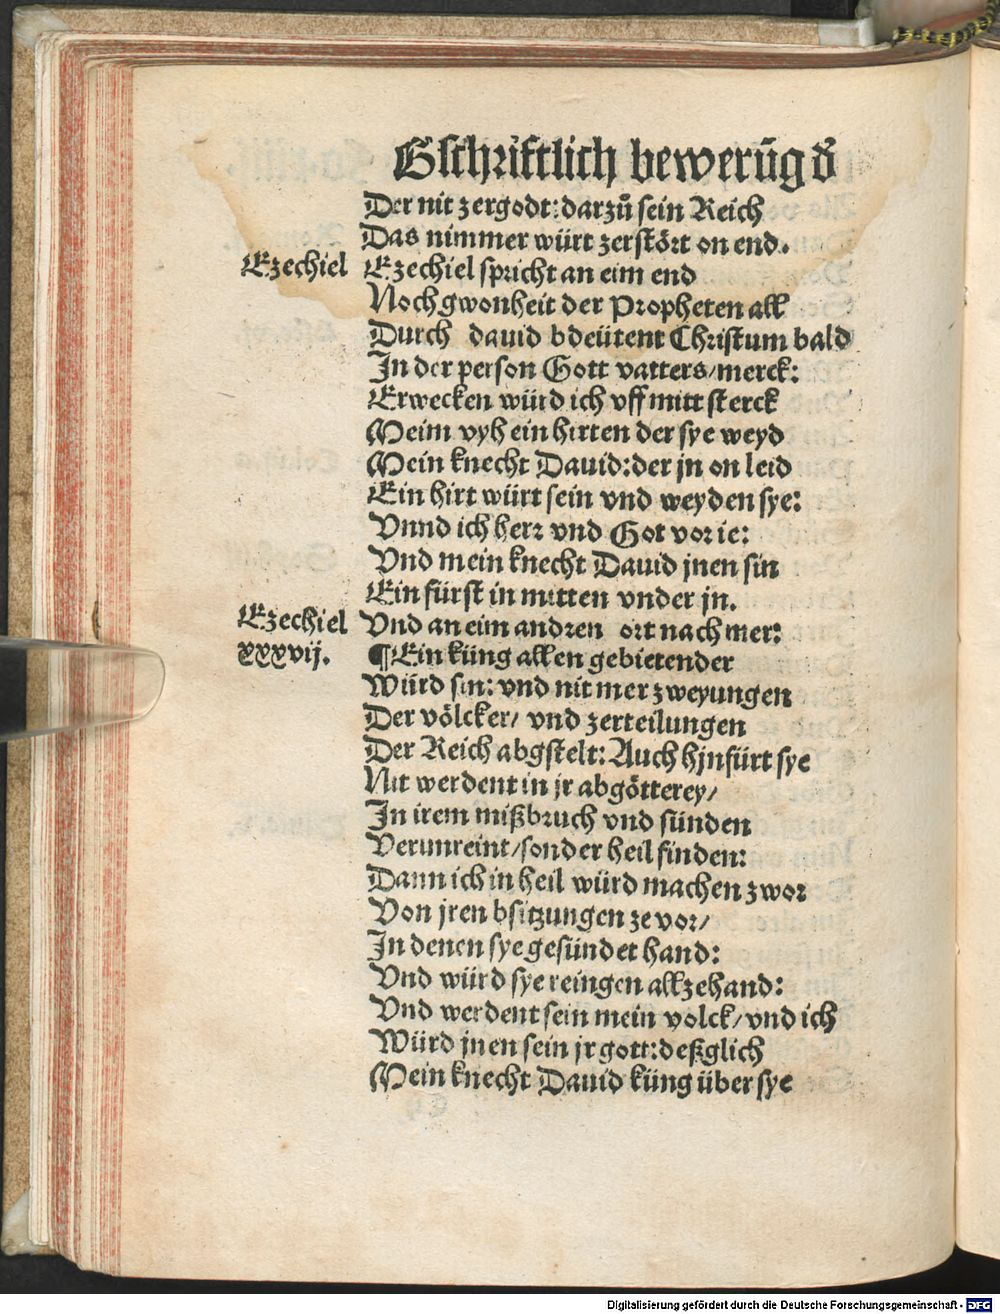 Gschrifftlich bewerūg d'
Der nit zergodt: darzů sein Reich
Das nimmer würt zerstört on end.
Ezechiel
Ezechiel spricht an eim end
Noch gwonheit der Propheten all
Durch dauid bdeütent Christum bald
In der person Gott vatters/ merck:
Erwecken würd ich vff mitt sterck
Meim vyh ein hirten der sye weyd
Mein knecht Dauid: der jn on leid
Ein hirt würt sein vnd weyden sye:
Vnnd ich herr vnd Got vor ie:
Vnd mein knecht Dauid jnen sin
Ein fürst in mitten vnder jn.
Ezechiel
xxxvij.
Vnd an eim andren ort nach mer:
¶Ein küng allen gebietender
Würd sin: vnd nit mer zweyungen
Der völcker/ vnd zerteilungen
Der Reich abgstelt: Auch hjnfürt sye
Nit werdent in jr abgötterey/
In irem mißbruch vnd sünden
Verunreint/ sonder heil finden:
Dann ich in heil würd machen zwor
Von jren bsitzungen ze vor/
In denen sye gesündet hand:
Vnd würd sye reingen allzehand:
Vnd werdent sein mein volck/ vnd ich
Würd jnen sein jr gott: deßglich
Mein knecht Dauid küng über sye
Digitalisierung gefördert durch die Deutsche Forschungsgemeinschaft - DFG